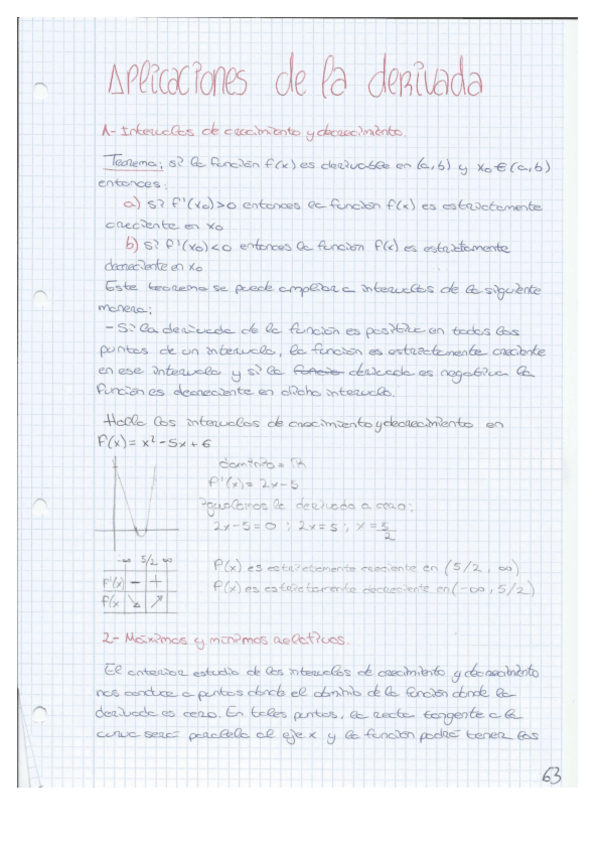 Aplicaciones de la derivada
1- Intervalos de crecimiento y decrecimiento.
Teorema: Si la función f(x) es derivable en (a,b) y x₀ ∈ (a,b)
entonces:
a) Si f'(x₀)>0 entonces la función f(x) es estrictamente
creciente en x₀
b) Si f'(x₀)<0 entonces la función f(x) es estrictamente
decreciente en x₀
Este teorema se puede ampliar a intervalos de la siguiente
manera:
- Si la derivada de la función es positiva en todos los
puntos de un intervalo, la función es estrictamente creciente
en ese intervalo y si la funcio derivada es negativa la
función es decreciente en dicho intervalo.
Halla los intervalos de crecimiento y decrecimiento en
f(x) = x² - 5x + 6
dominio = ℝ
f'(x) = 2x - 5
Igualamos la derivada a cero:
2x - 5 = 0 ; 2x = 5 ; x = 5/2
-∞ 5/2 ∞
f'(x) - +
f(x ↘ ↗
f(x) es estrictamente creciente en (5/2, ∞)
f(x) es estrictamente decreciente en (-∞, 5/2)
2- Máximos y mínimos relativos.
El anterior estudio de los intervalos de crecimiento y decrecimiento
nos conduce a puntos donde el dominio de la función donde la
derivada es cero. En tales puntos, la recta tangente a la
curva será paralela al eje x y la función podrá tener los
63